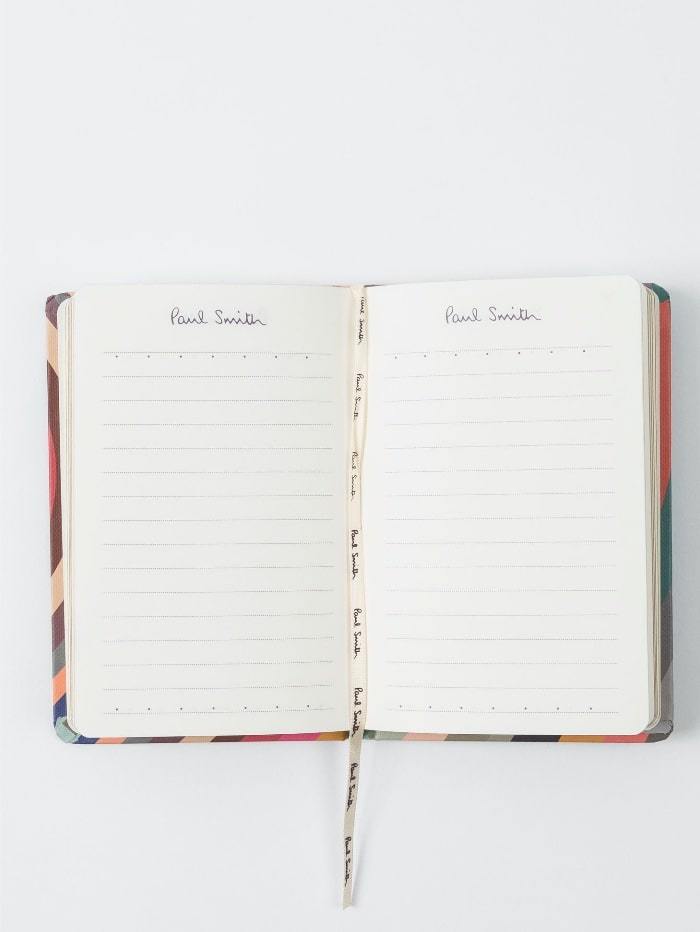 Paul Smith
Paul Smith
Paul Smith
Paul Smith
Paul Smith
Paul Smith
Paul Smith
Paul Smith
Paul Smith
Paul Smith